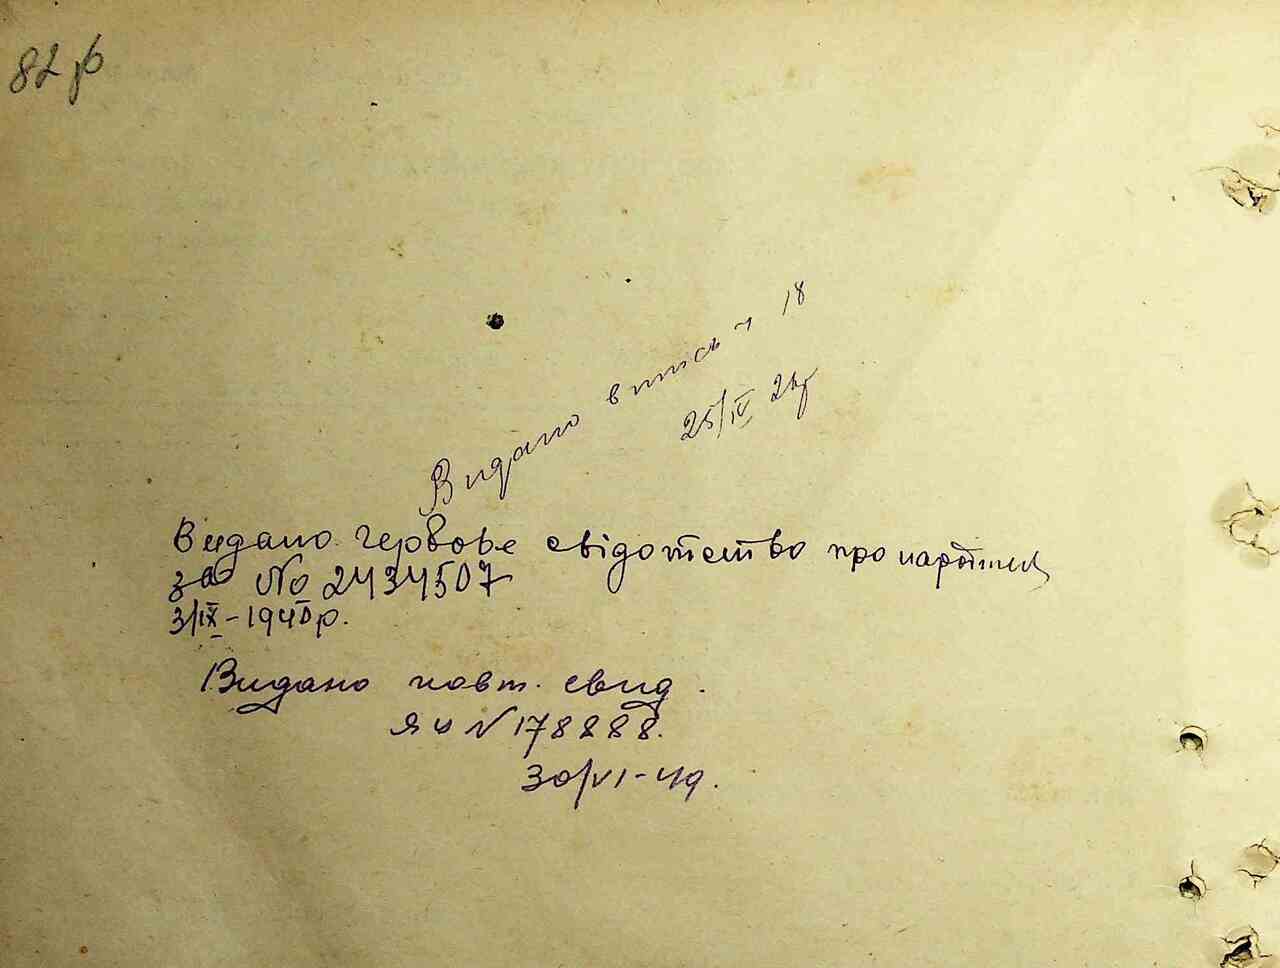 82 р
Видано випись ч 18
25/IV 24р
Видано червове свідотство про народження
за No 2434507
3/IX-1940р.
Видано повт. свид.
ЯЧ N 178888.
30/VI-49.